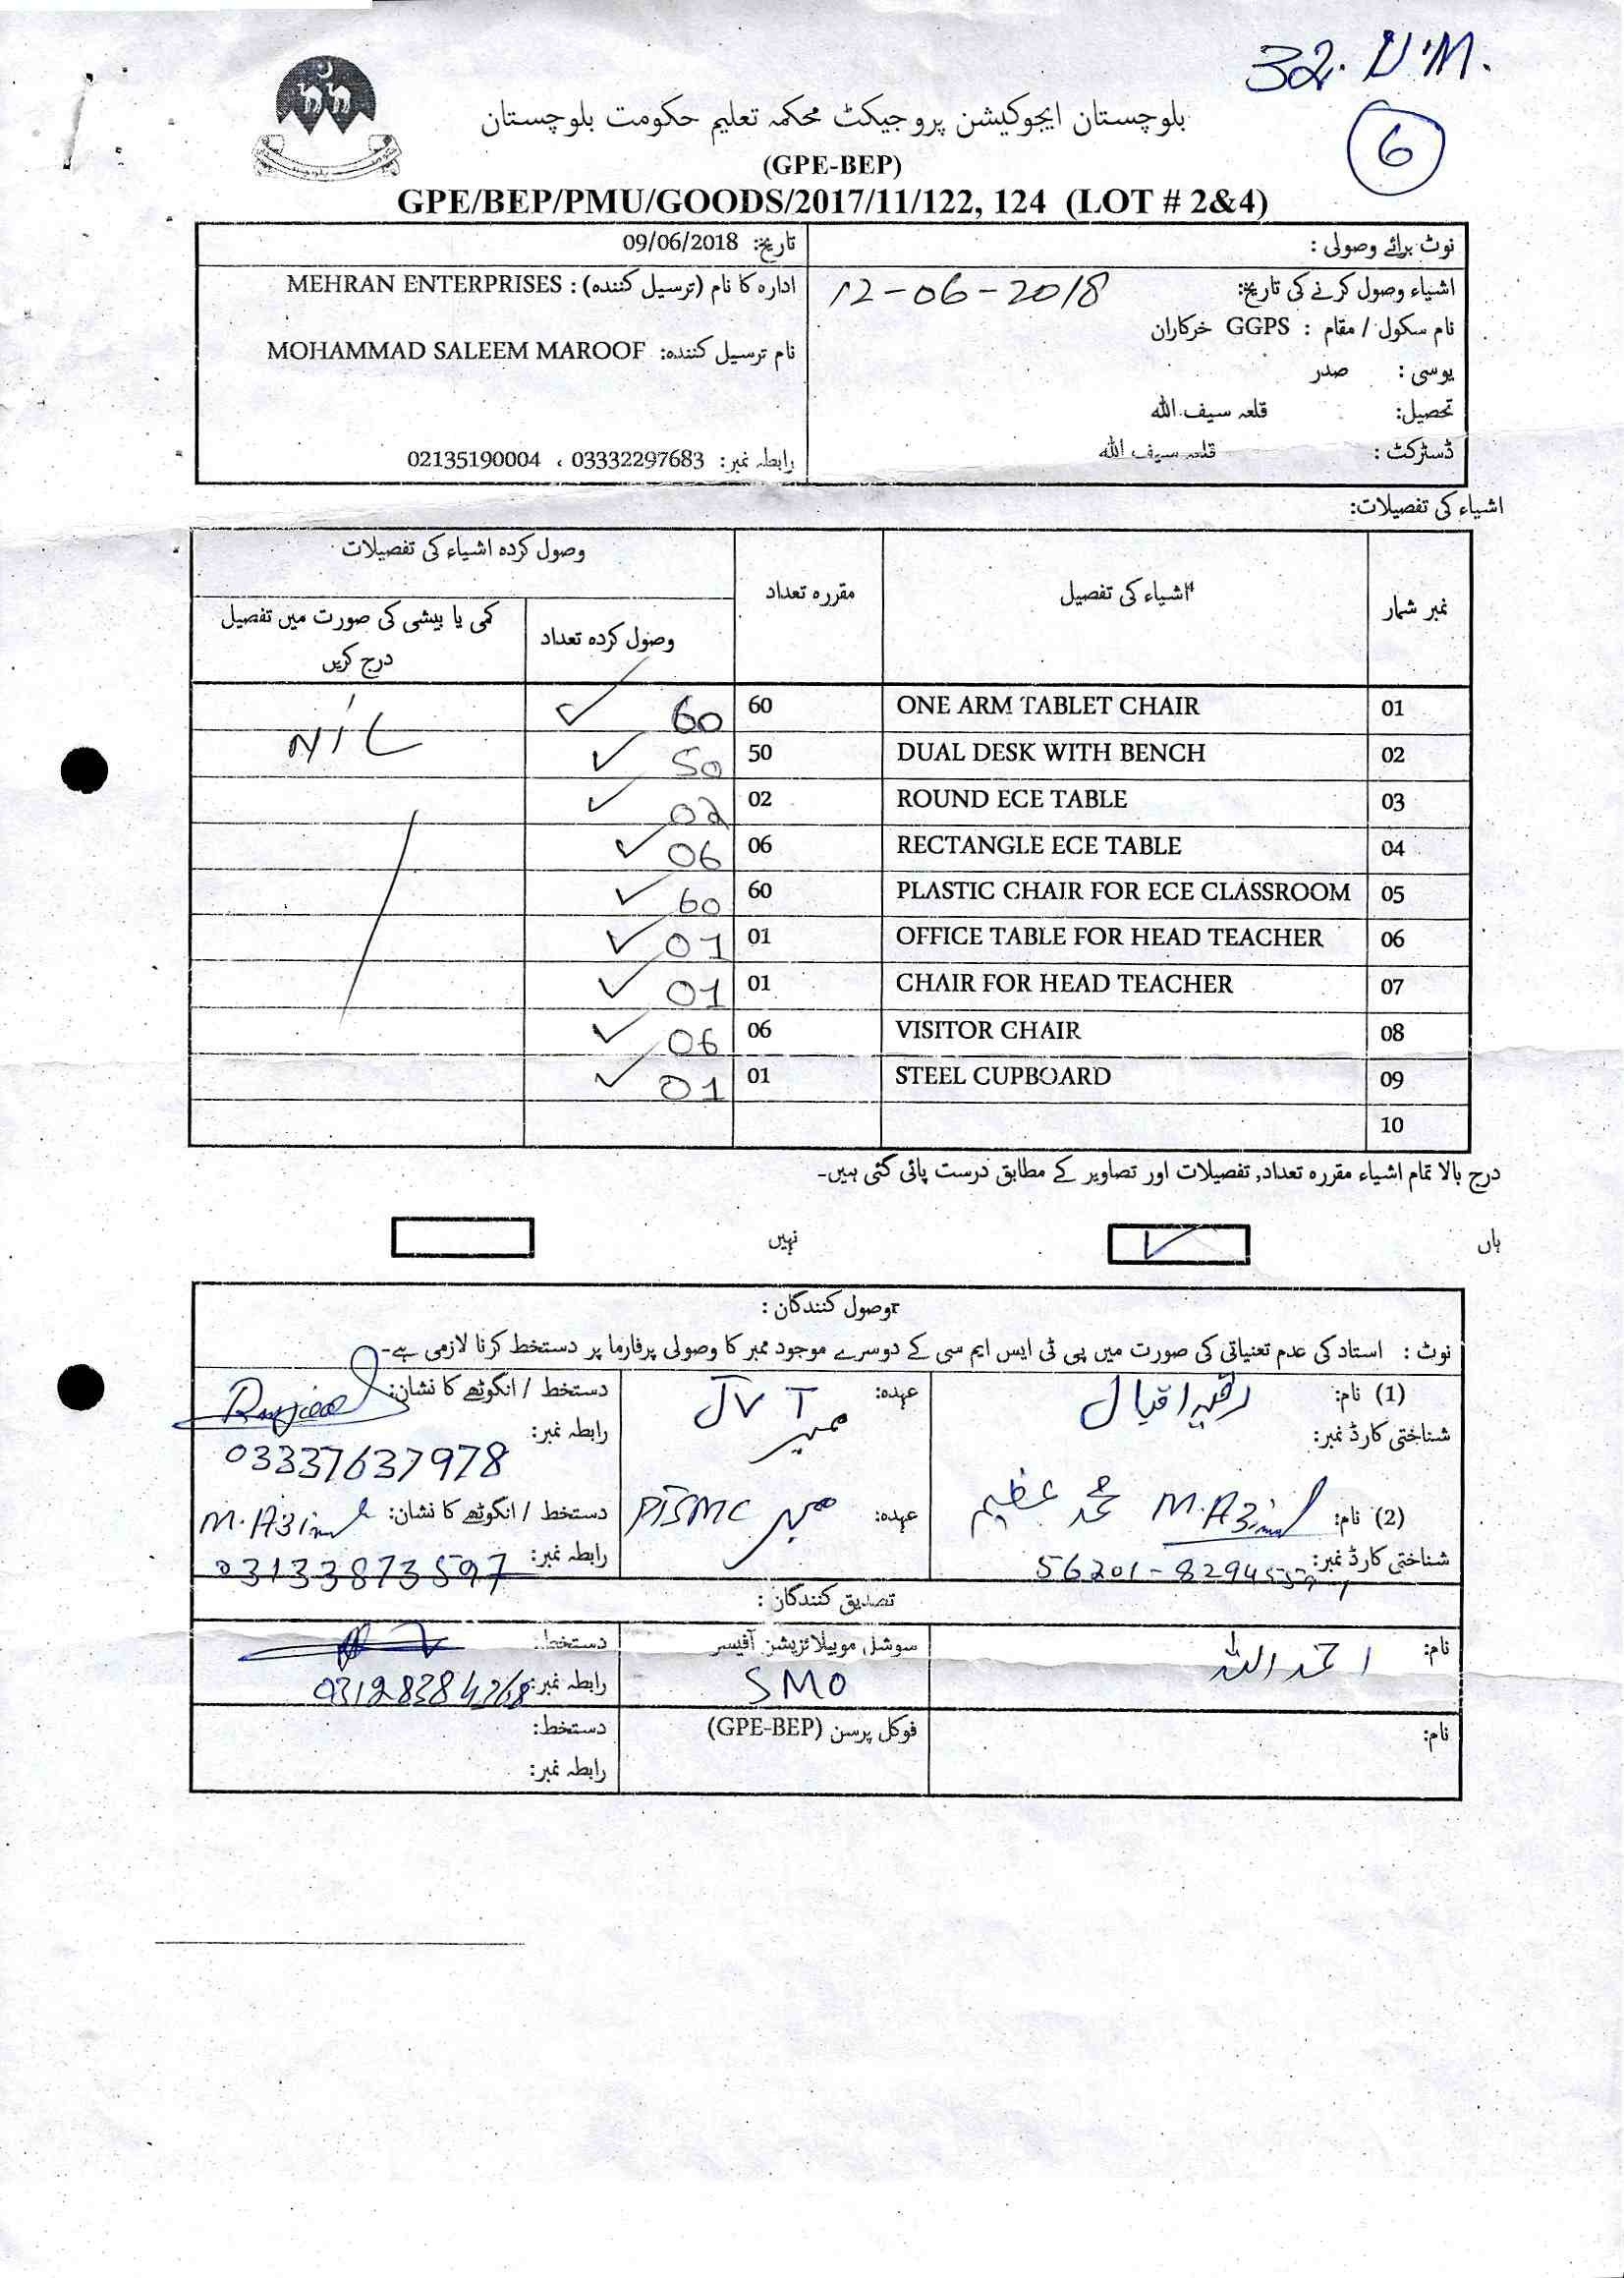 32. D.M.
6
بلوچستان ایجوکیشن پروجیکٹ محکمہ تعلیم حکومت بلوچستان
(GPE-BEP)
GPE/BEP/PMU/GOODS/2017/11/122, 124 (LOT # 2&4)
نوٹ برائے وصولی :
تاریخ: 09/06/2018
اشیاء وصول کرنے کی تاریخ: 12-06-2018
ادارہ کا نام (ترسیل کنندہ) : MEHRAN ENTERPRISES
نام سکول / مقام : GGPS خرکاران
نام ترسیل کنندہ: MOHAMMAD SALEEM MAROOF
یوسی : صدر
تحصیل: قلعہ سیف اللہ
ڈسٹرکٹ : قلعہ سیف اللہ
رابطہ نمبر: 03332297683 ، 02135190004
اشیاء کی تفصیلات:
نمبر شمار اشیاء کی تفصیل مقررہ تعداد وصول کردہ اشیاء کی تفصیلات
وصول کردہ تعداد کمی یا بیشی کی صورت میں تفصیل درج کریں
01 ONE ARM TABLET CHAIR 60 60 NIL
02 DUAL DESK WITH BENCH 50 50
03 ROUND ECE TABLE 02 02
04 RECTANGLE ECE TABLE 06 06
05 PLASTIC CHAIR FOR ECE CLASSROOM 60 60
06 OFFICE TABLE FOR HEAD TEACHER 01 01
07 CHAIR FOR HEAD TEACHER 01 01
08 VISITOR CHAIR 06 06
09 STEEL CUPBOARD 01 01
10
درج بالا تمام اشیاء مقررہ تعداد, تفصیلات اور تصاویر کے مطابق درست پائی گئی ہیں۔
ہاں ✓ نہیں
وصول کنندگان :
نوٹ : استاد کی عدم تعنیاتی کی صورت میں پی ٹی ایس ایم سی کے دوسرے موجود ممبر کا وصولی پرفارما پر دستخط کرنا لازمی ہے۔
(1) نام: رقیہ اقبال عہدہ: JVT ممبر دستخط / انگوٹھے کا نشان:
شناختی کارڈ نمبر: رابطہ نمبر: 03337637978
(2) نام: M.Azim محمد عظیم عہدہ: ممبر PTSMC دستخط / انگوٹھے کا نشان: M.Azim
شناختی کارڈ نمبر: رابطہ نمبر: 03133873597
تصدیق کنندگان :
نام: احمد اللہ سوشل موبیلائزیشن آفیسر SMO دستخط:
رابطہ نمبر:
نام: فوکل پرسن (GPE-BEP) دستخط:
رابطہ نمبر: